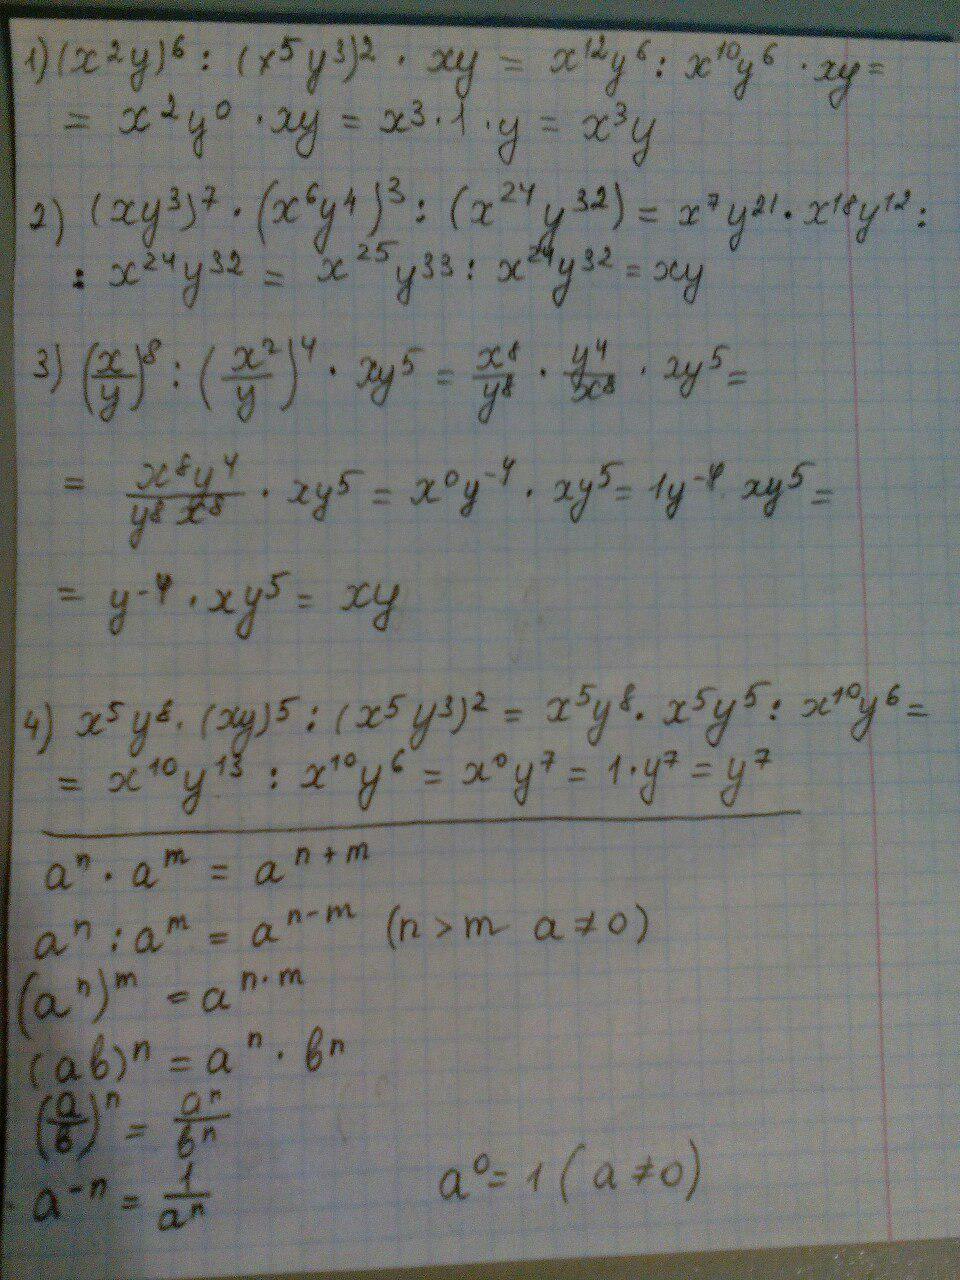 1) (x²y)⁶ : (x⁵y³)² · xy = x¹²y⁶ : x¹⁰y⁶ · xy =
= x²y⁰ · xy = x³ · 1 · y = x³y
2) (xy³)⁷ · (x⁶y⁴)³ : (x²⁴y³²) = x⁷y²¹ · x¹⁸y¹² :
: x²⁴y³² = x²⁵y³³ : x²⁴y³² = xy
3) (x/y)⁸ : (x²/y)⁴ · xy⁵ = x⁸/y⁸ · y⁴/x⁸ · xy⁵ =
= x⁸y⁴/y⁸x⁸ · xy⁵ = x⁰y⁻⁴ · xy⁵ = 1y⁻⁴ · xy⁵ =
= y⁻⁴ · xy⁵ = xy
4) x⁵y⁸ · (xy)⁵ : (x⁵y³)² = x⁵y⁸ · x⁵y⁵ : x¹⁰y⁶ =
= x¹⁰y¹³ : x¹⁰y⁶ = x⁰y⁷ = 1 · y⁷ = y⁷
aⁿ · aᵐ = aⁿ⁺ᵐ
aⁿ : aᵐ = aⁿ⁻ᵐ (n > m a ≠ 0)
(aⁿ)ᵐ = aⁿ·ᵐ
(ав)ⁿ = aⁿ · вⁿ
(a/в)ⁿ = aⁿ/вⁿ
a⁻ⁿ = 1/aⁿ a⁰ = 1 (a ≠ 0)